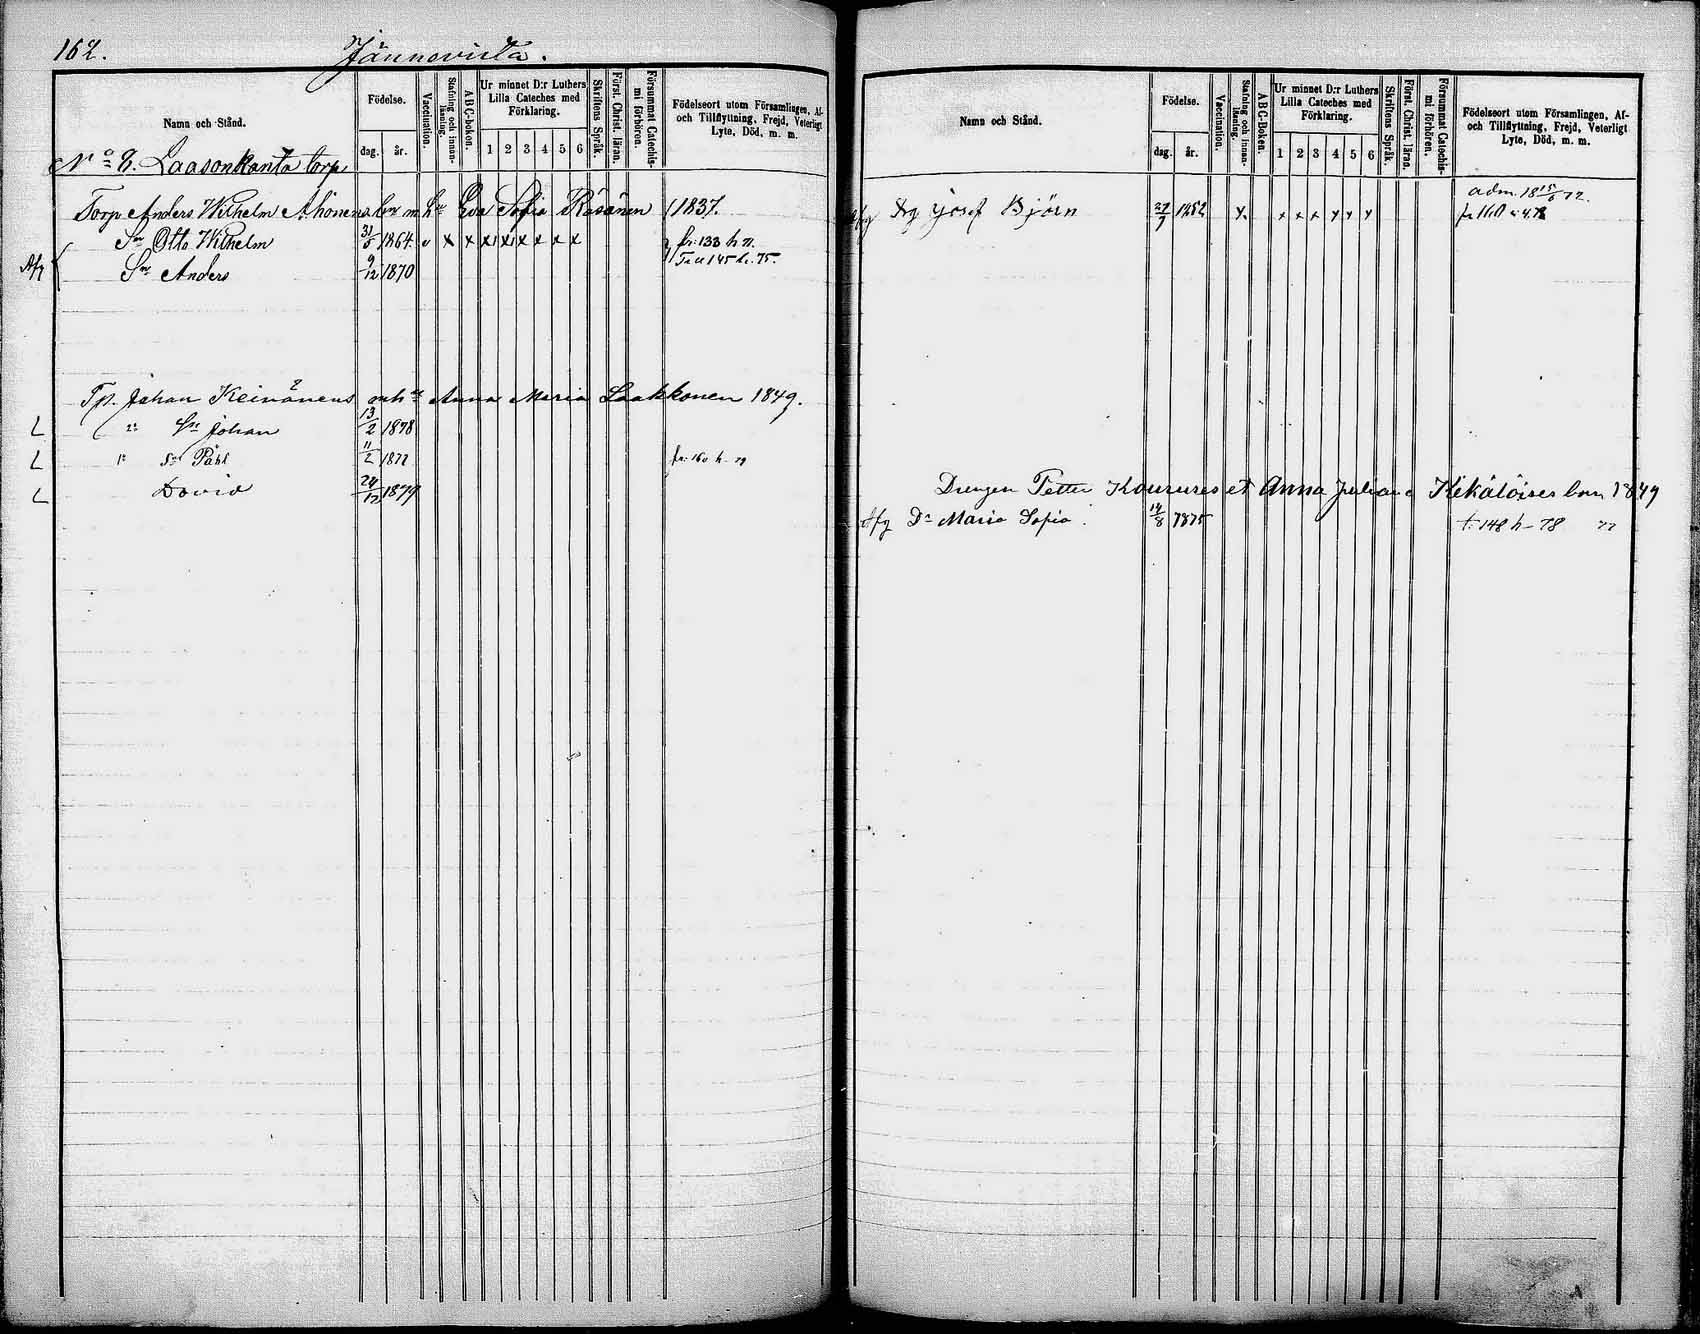 162.
Jännevirta.
Namn och Stånd.
Födelse.
dag.
år.
Vaccination.
Stafning och innanläsning.
ABC-boken.
Ur minnet D:r Luthers
Lilla Cateches med
Förklaring.
1 2 3 4 5 6
Skriftens Språk.
Först. Christ. läran.
Försummat Catechismi förhören.
Födelseort utom Församlingen, Af-
och Tillflyttning, Frejd, Veterligt
Lyte, Död, m. m.
No 8. Laasonkanta torp
Torp Anders Wilhelm Ahonens barn m. hu Eva Sofia Räsänen 1837.
Sn Otto Wilhelm 31/5 1864. v x x x x x x x x fr: 133 h 71.
Afg Sn Anders 9/12 1870 Till 145 h. 75.
Tp. Johan Keinänens m h Anna Maria Laakkonen 1849.
L Sn Johan 13/2 1878
L Sn Påhl 11/2 1877 fr: 160 h - 79
L David 24/12 1879
Namn och Stånd.
Födelse.
dag.
år.
Vaccination.
Stafning och innanläsning.
ABC-Boken.
Ur minnet D:r Luthers
Lilla Cateches med
Förklaring.
1 2 3 4 5 6
Skriftens Språk.
Först. Christ. läran.
Försummat Catechismi förhören.
Födelseort utom Församlingen, Af-
och Tillflyttning, Frejd, Veterligt
Lyte, Död, m. m.
adm. 18 15/6 72.
Afg Drg Josef Björn 27/7 1852 x x x x x x x fr 160
Drengen Petter et Anna Juliana barn 1849
Afg Dr Maria Sofia. 14/8 1875 t: 148 h - 78